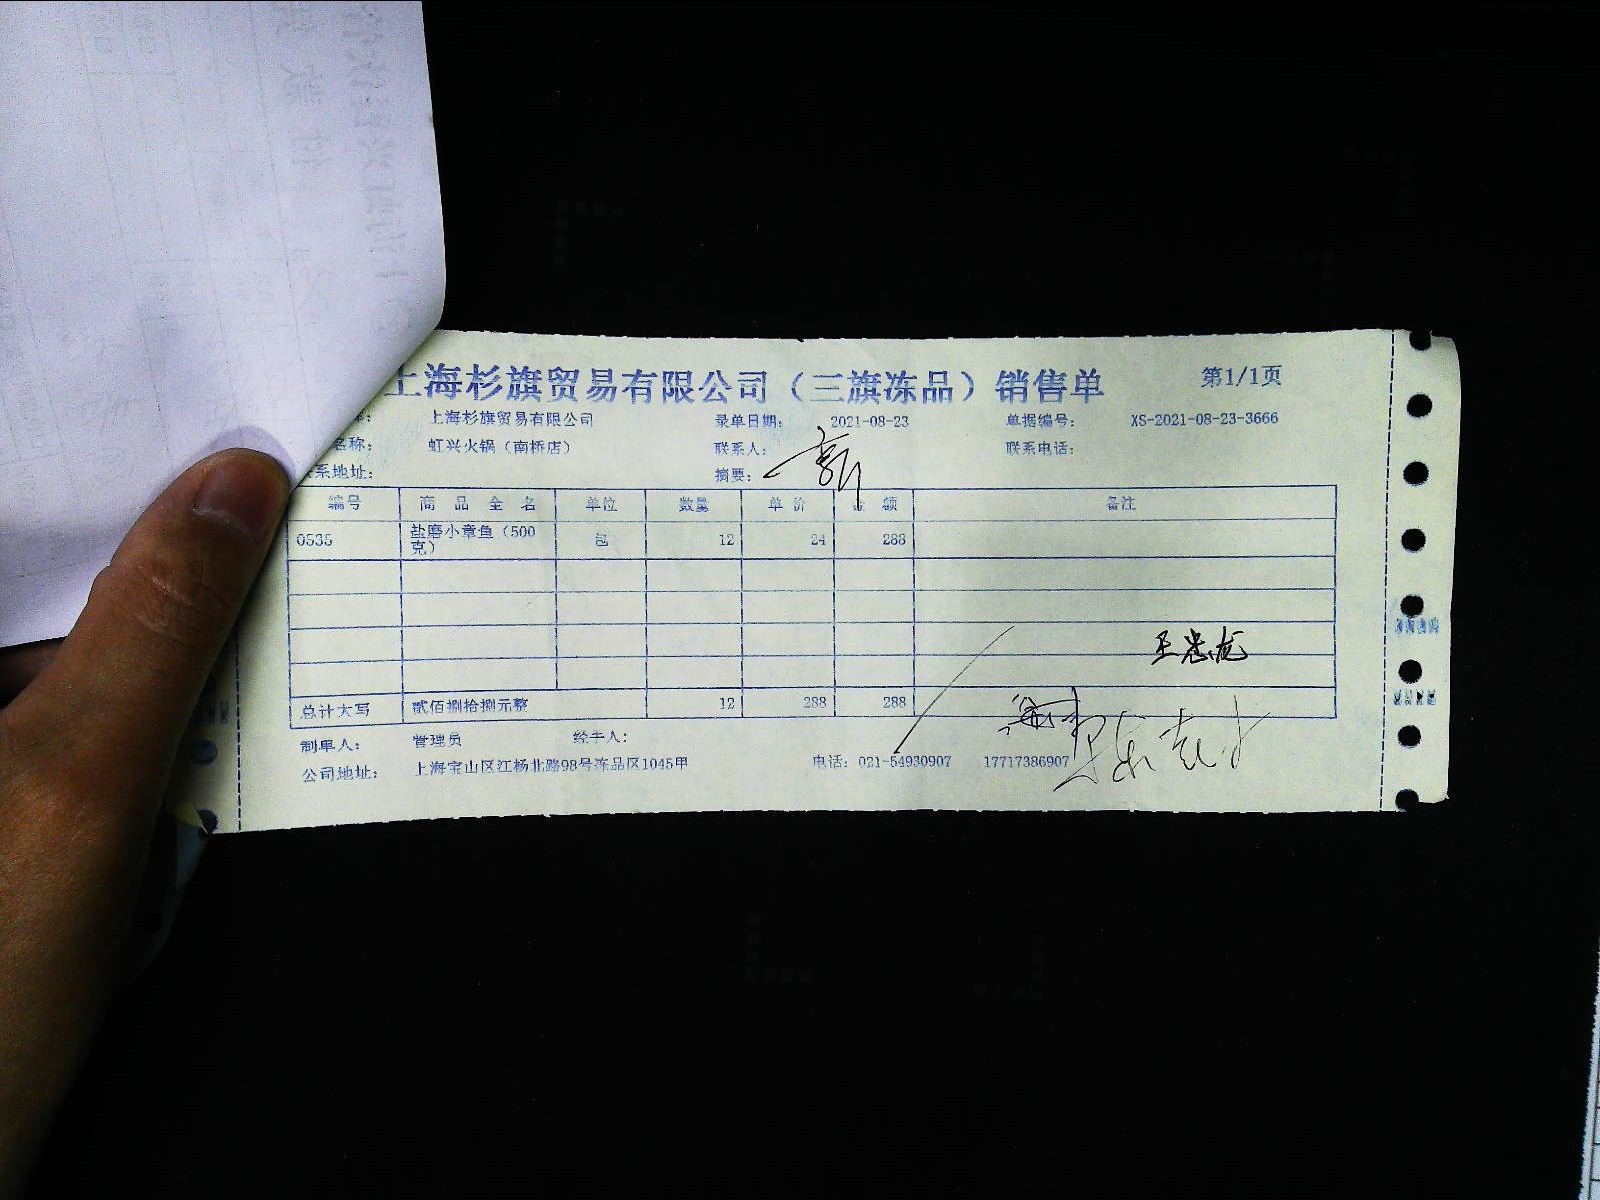 上海杉旗贸易有限公司（三旗冻品）销售单 第1/1页
上海杉旗贸易有限公司 录单日期： 2021-08-23 单据编号： XS-2021-08-23-3666
名称： 虹兴火锅（南桥店） 联系人： 联系电话：
系地址： 摘要：
编号 商品全名 单位 数量 单价 金额 备注
0535 盐磨小章鱼（500克） 包 12 24 288
王忠龙
总计大写 贰佰捌拾捌元整 12 288 288
制单人： 管理员 经手人：
公司地址： 上海宝山区江杨北路98号冻品区1045甲 电话：021-54930907 17717386907